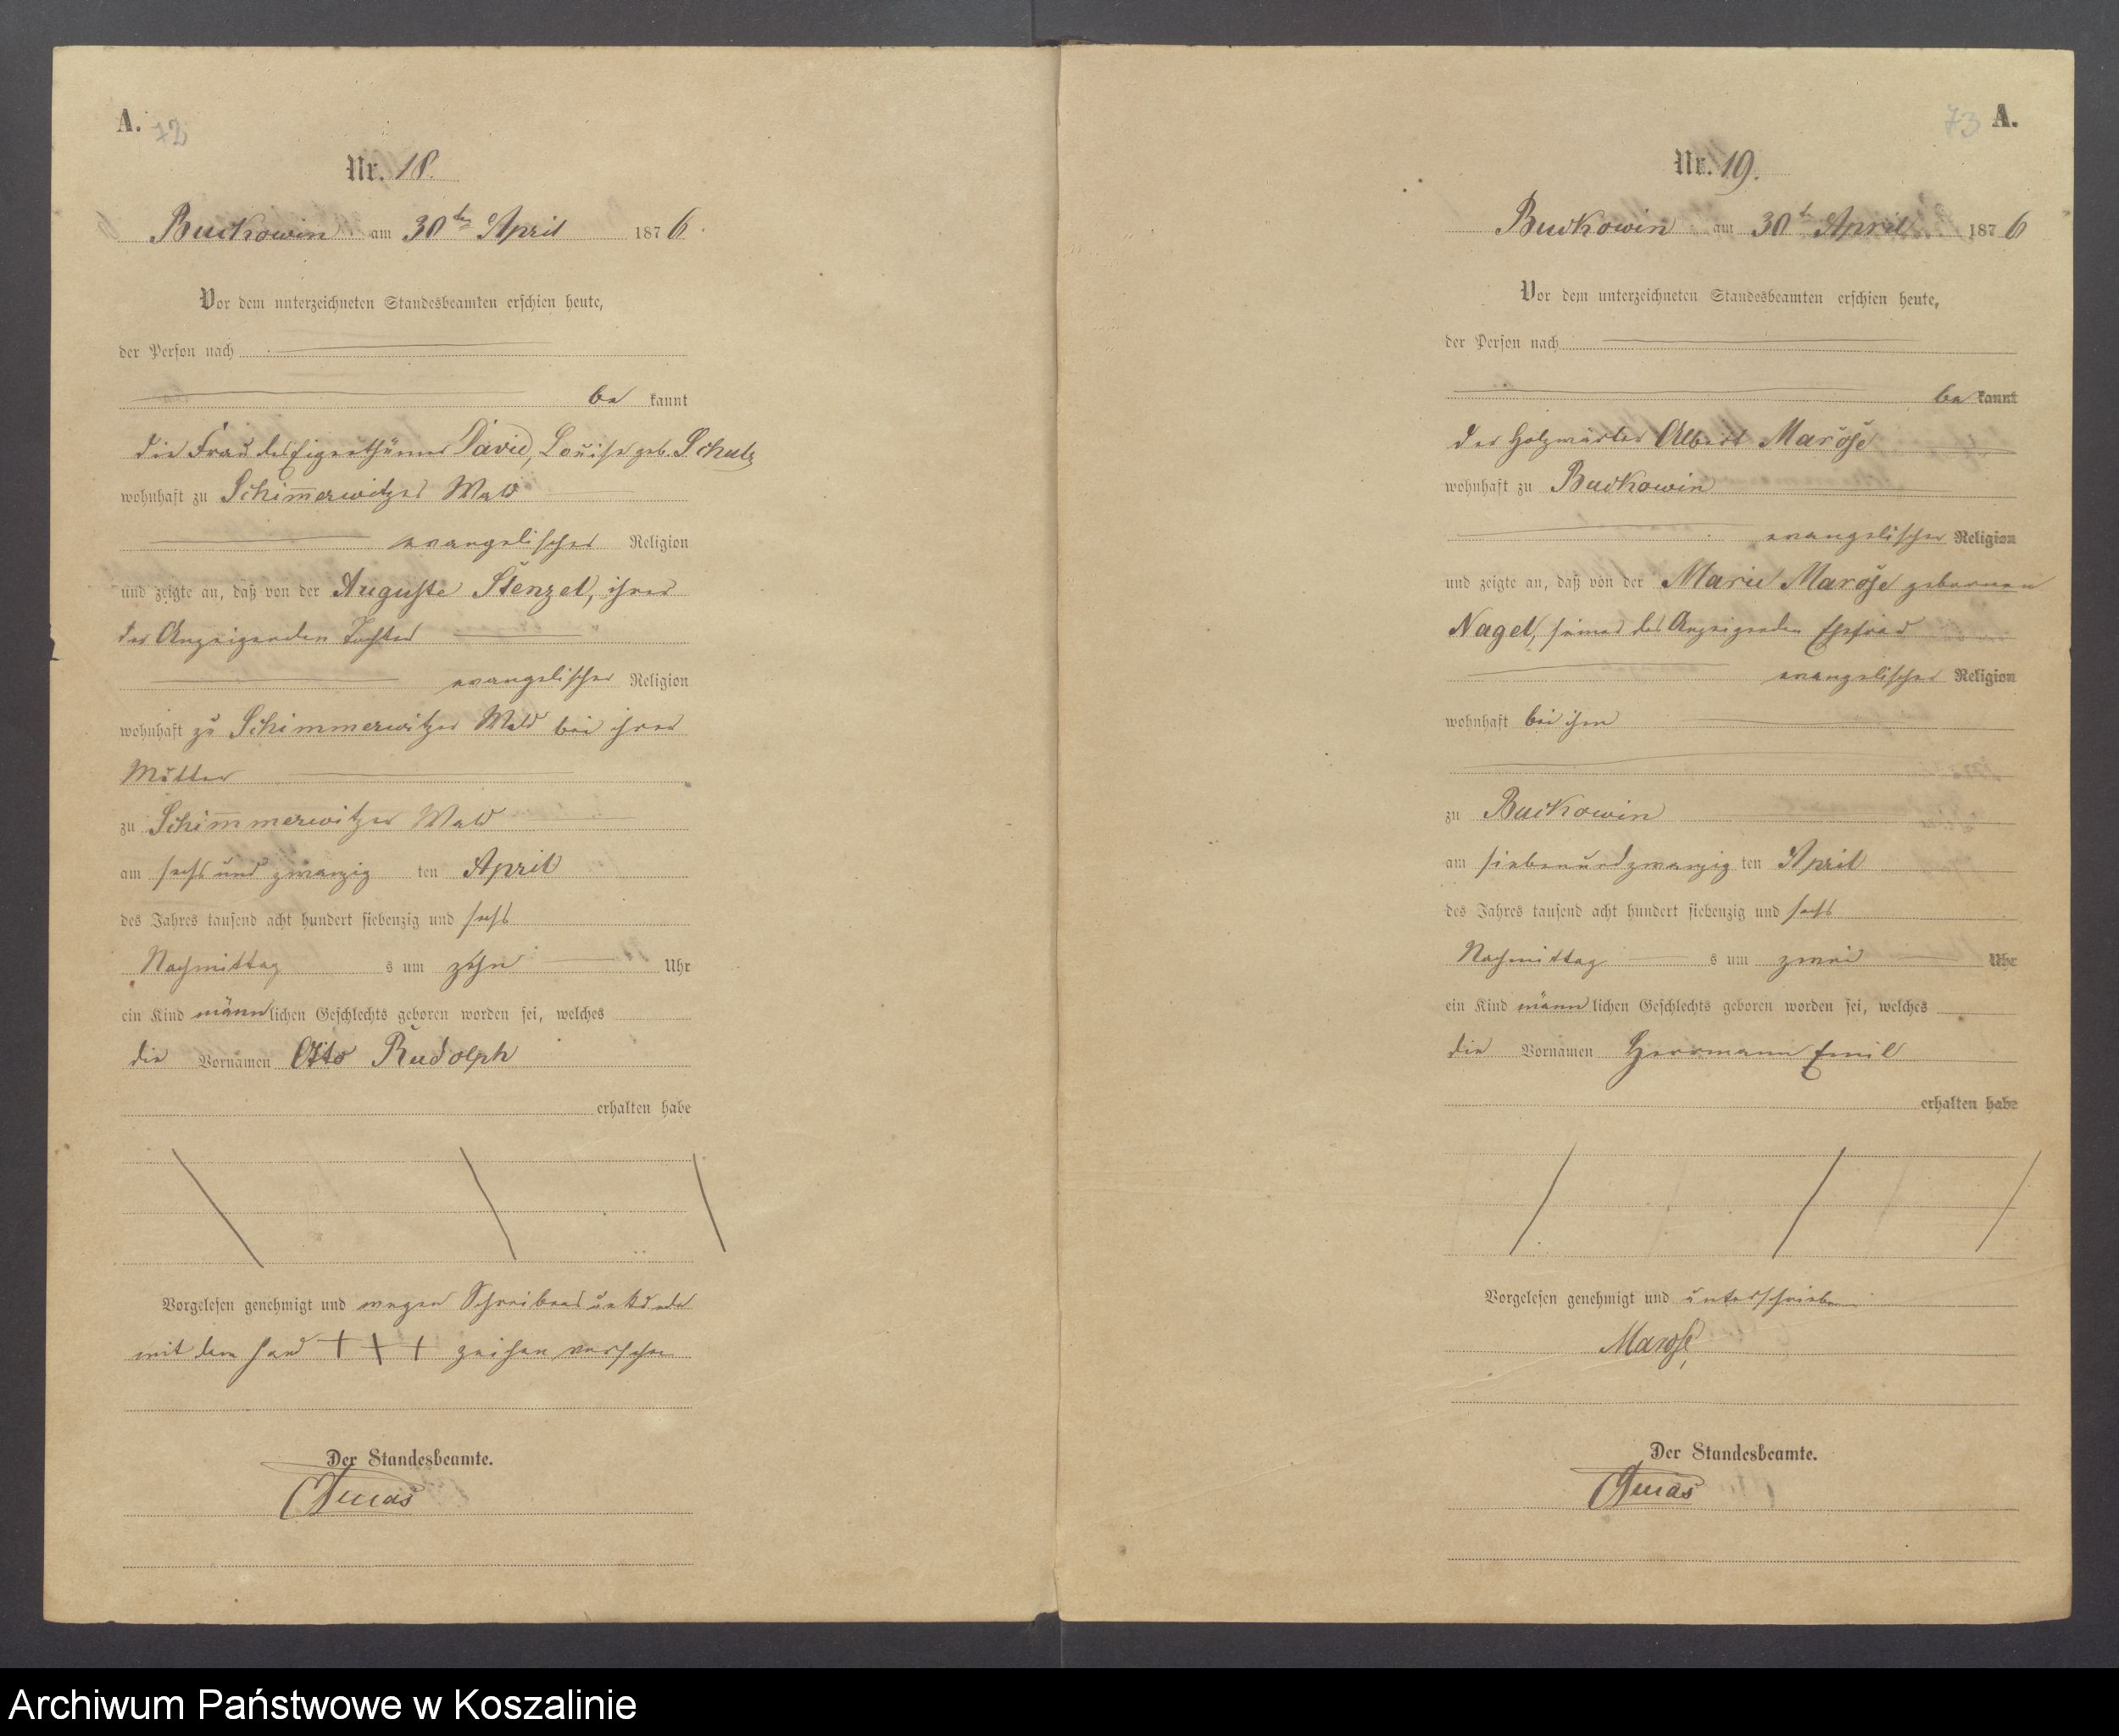 A. 72
Nr. 18.
Buckowin am 30ten April 1876.
Vor dem unterzeichneten Standesbeamten erschien heute,
der Person nach
be kannt
die Frau des Eigenthümer David, Louise geb. Schulz
wohnhaft zu Schimmerwitzer Wald
evangelischer Religion
und zeigte an, daß von der Auguste Stenzel, ihrer
der Anzeigenden Tochter
evangelischer Religion
wohnhaft zu Schimmerwitzer Wald bei ihrer
Mutter
zu Schimmerwitzer Wald
am sechs und zwanzig ten April
des Jahres tausend acht hundert siebenzig und sechs
Nachmittag s um zehn Uhr
ein Kind männlichen Geschlechts geboren worden sei, welches
die Vornamen Otto Rudolph
erhalten habe
Vorgelesen genehmigt und wegen Schreibens
mit dem Hand +++ zeichen versehen
Der Standesbeamte.
73 A.
Nr. 19.
Buckowin am 30t April 1876
Vor dem unterzeichneten Standesbeamten erschien heute,
der Person nach
be kannt
der Holzwärter Albert Marose
wohnhaft zu Buckowin
evangelischer Religion
und zeigte an, daß von der Marie Marose gebornen
Nagel, seiner des Anzeigenden Ehefrau
evangelischer Religion
wohnhaft bei ihm
zu Buckowin
am siebenundzwanzig ten April
des Jahres tausend acht hundert siebenzig und sechs
Nachmittag s um zwei Uhr
ein Kind männlichen Geschlechts geboren worden sei, welches
die Vornamen Herrmann Emil
erhalten habe
Vorgelesen genehmigt und unterschrieben
Marose
Der Standesbeamte.
Archiwum Państwowe w Koszalinie